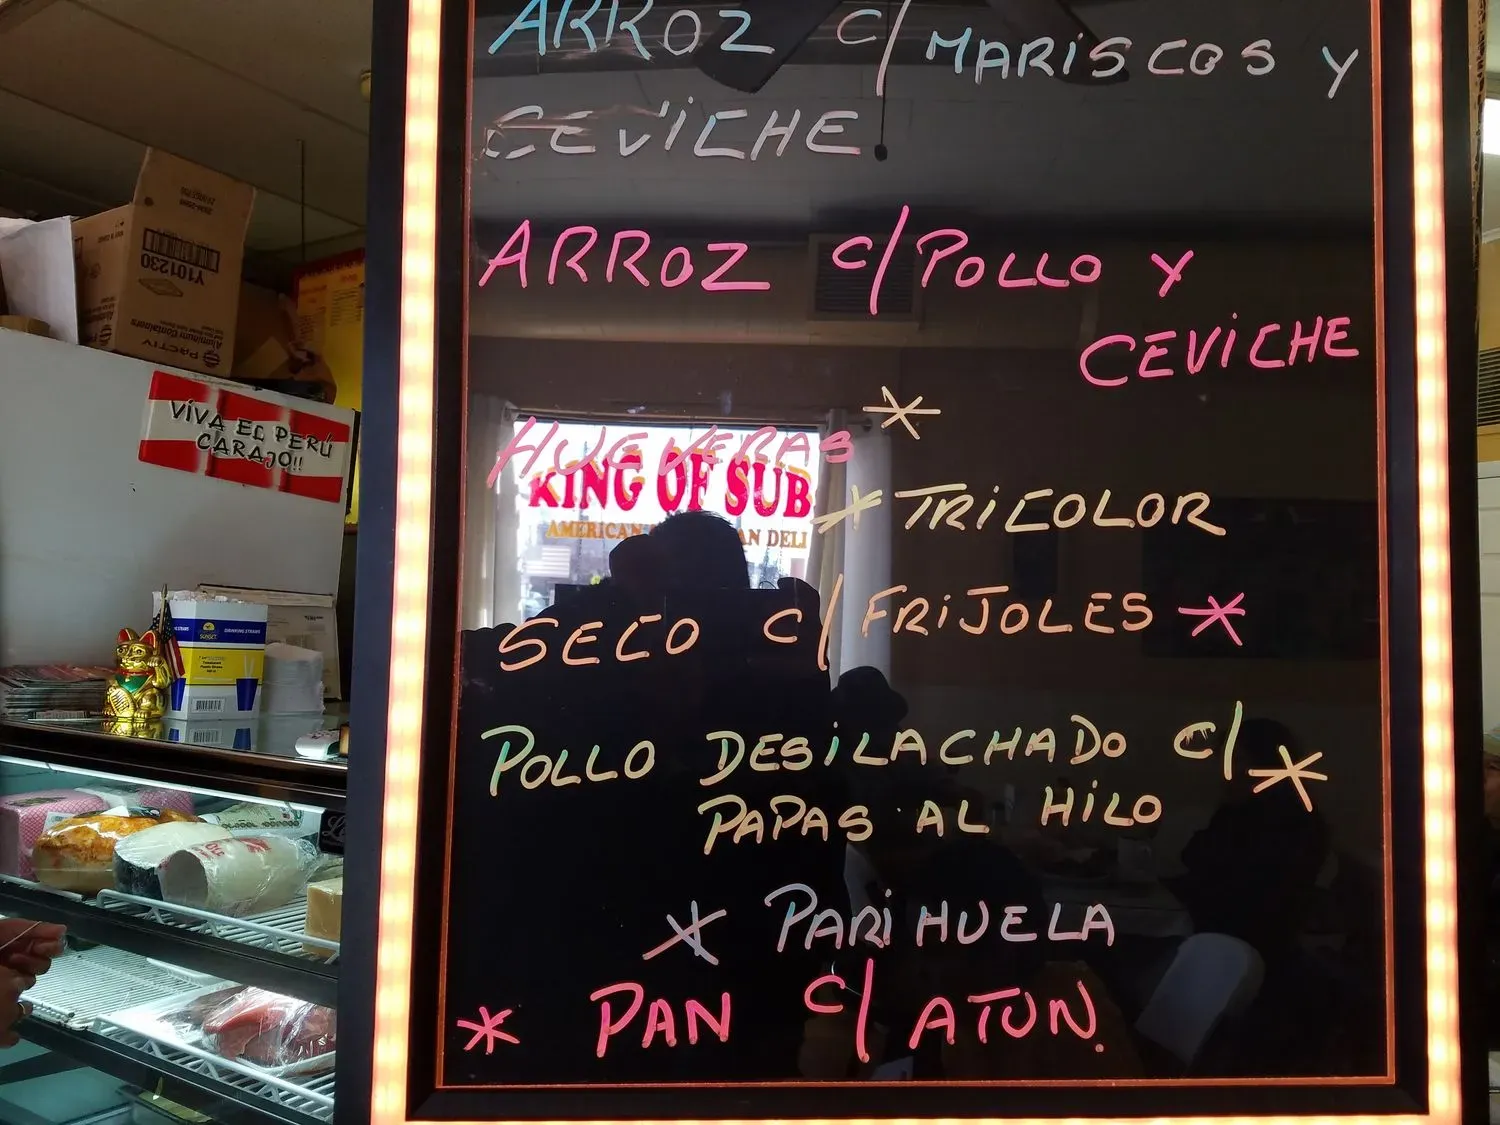 ARROZ C/ MARISCOS Y
CEVICHE
ARROZ C/ POLLO Y
CEVICHE
HUEVERAS *
* TRICOLOR
SECO C/ FRIJOLES *
POLLO DESILACHADO C/ *
PAPAS AL HILO
* PARIHUELA
* PAN C/ ATUN.
KING OF SUB
AMERICAN
AN DELI
VIVA EL PERÚ
CARAJO!!
Y101230
Aluminum Containers
PACTIV
DRINKING STRAWS
SUNSET